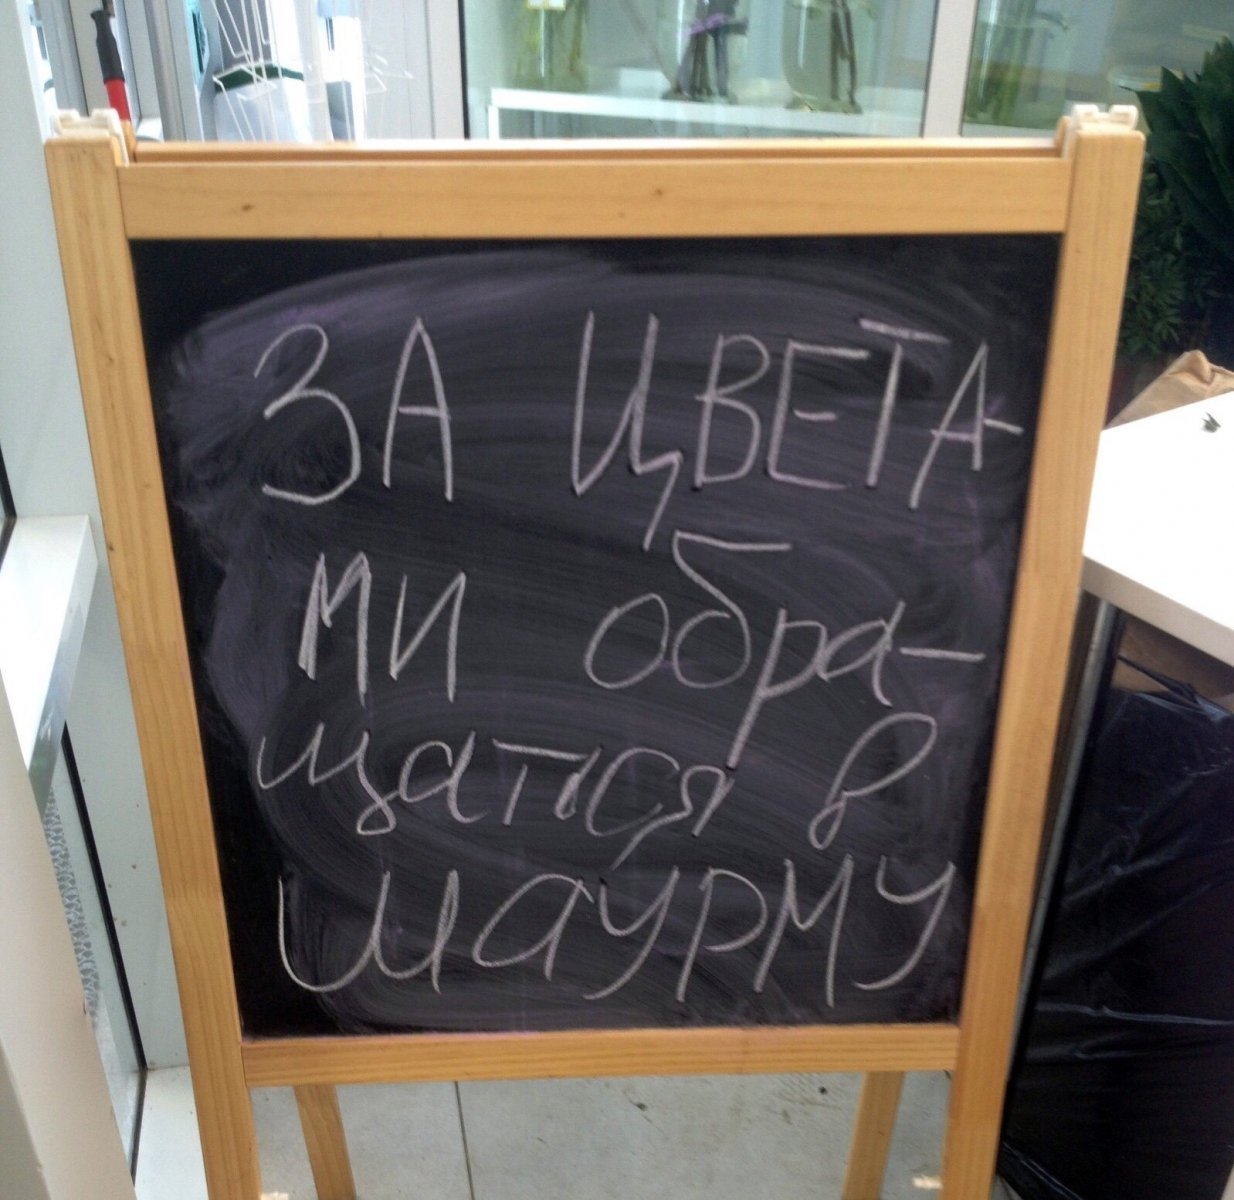 ЗА ЦВЕТА-
МИ обра-
щатся в
шаурму